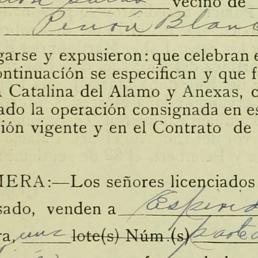 vecino de
Peñón Blanc
garse y expusieron: que celebran e
ontinuación se especifican y que f
Catalina del Alamo y Anexas, c
ado la operación consignada en es
ión vigente y en el Contrato de
MERA:—Los señores licenciados
sado, venden a
ra, una lote(s) Núm.(s)